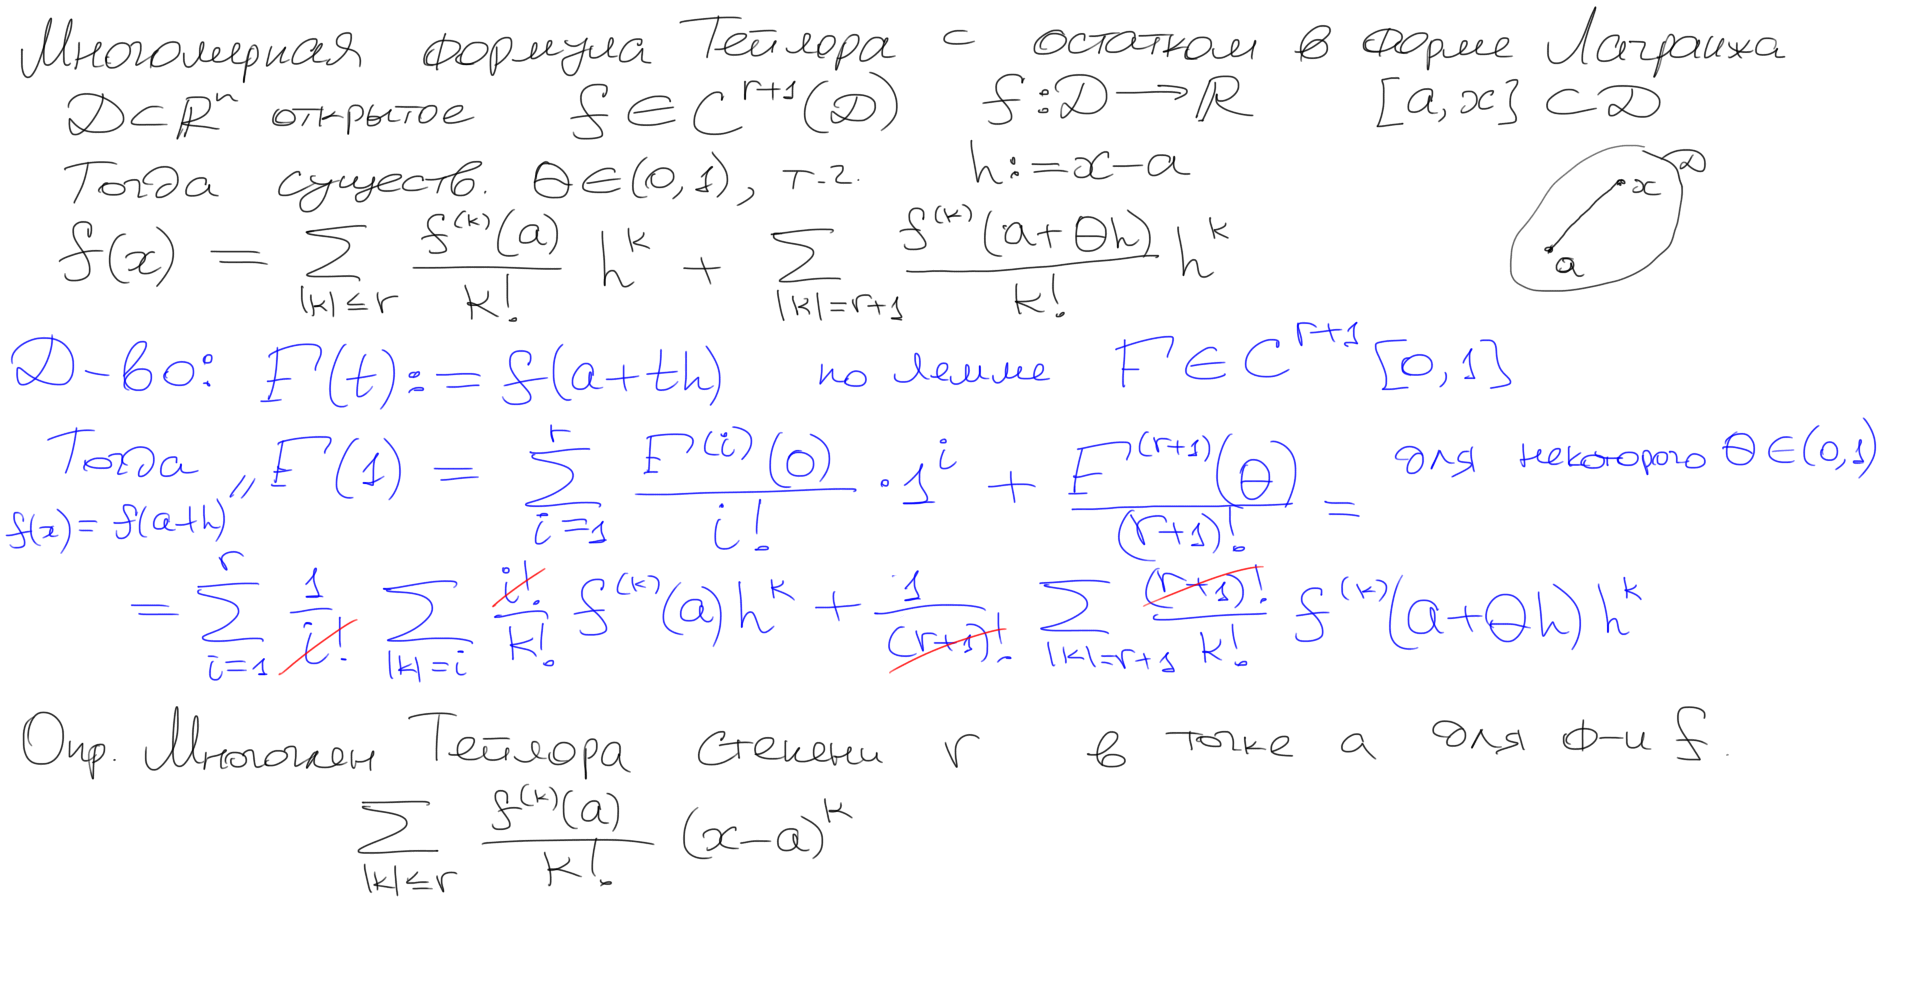 Многомерная формула Тейлора с остатком в форме Лагранжа
D⊂ℝⁿ открытое f∈C^{r+1}(D) f:D→ℝ [a,x]⊂D
Тогда существ. θ∈(0,1), т.ч. h:=x−a
f(x) = ∑_{|k|≤r} f^{(k)}(a)/k! h^k + ∑_{|k|=r+1} f^{(k)}(a+θh)/k! h^k
D
x
a
Д-во: F(t):=f(a+th) по лемме F∈C^{r+1}[0,1]
Тогда F(1) = ∑_{i=1}^{r} F^{(i)}(0)/i! · 1^i + F^{(r+1)}(θ)/(r+1)! = для некоторого θ∈(0,1)
" f(x)=f(a+h)
= ∑_{i=1}^{r} 1/i! ∑_{|k|=i} i!/k! f^{(k)}(a)h^k + 1/(r+1)! ∑_{|k|=r+1} (r+1)!/k! f^{(k)}(a+θh)h^k
Опр. Многочлен Тейлора степени r в точке a для ф-и f.
∑_{|k|≤r} f^{(k)}(a)/k! (x−a)^k